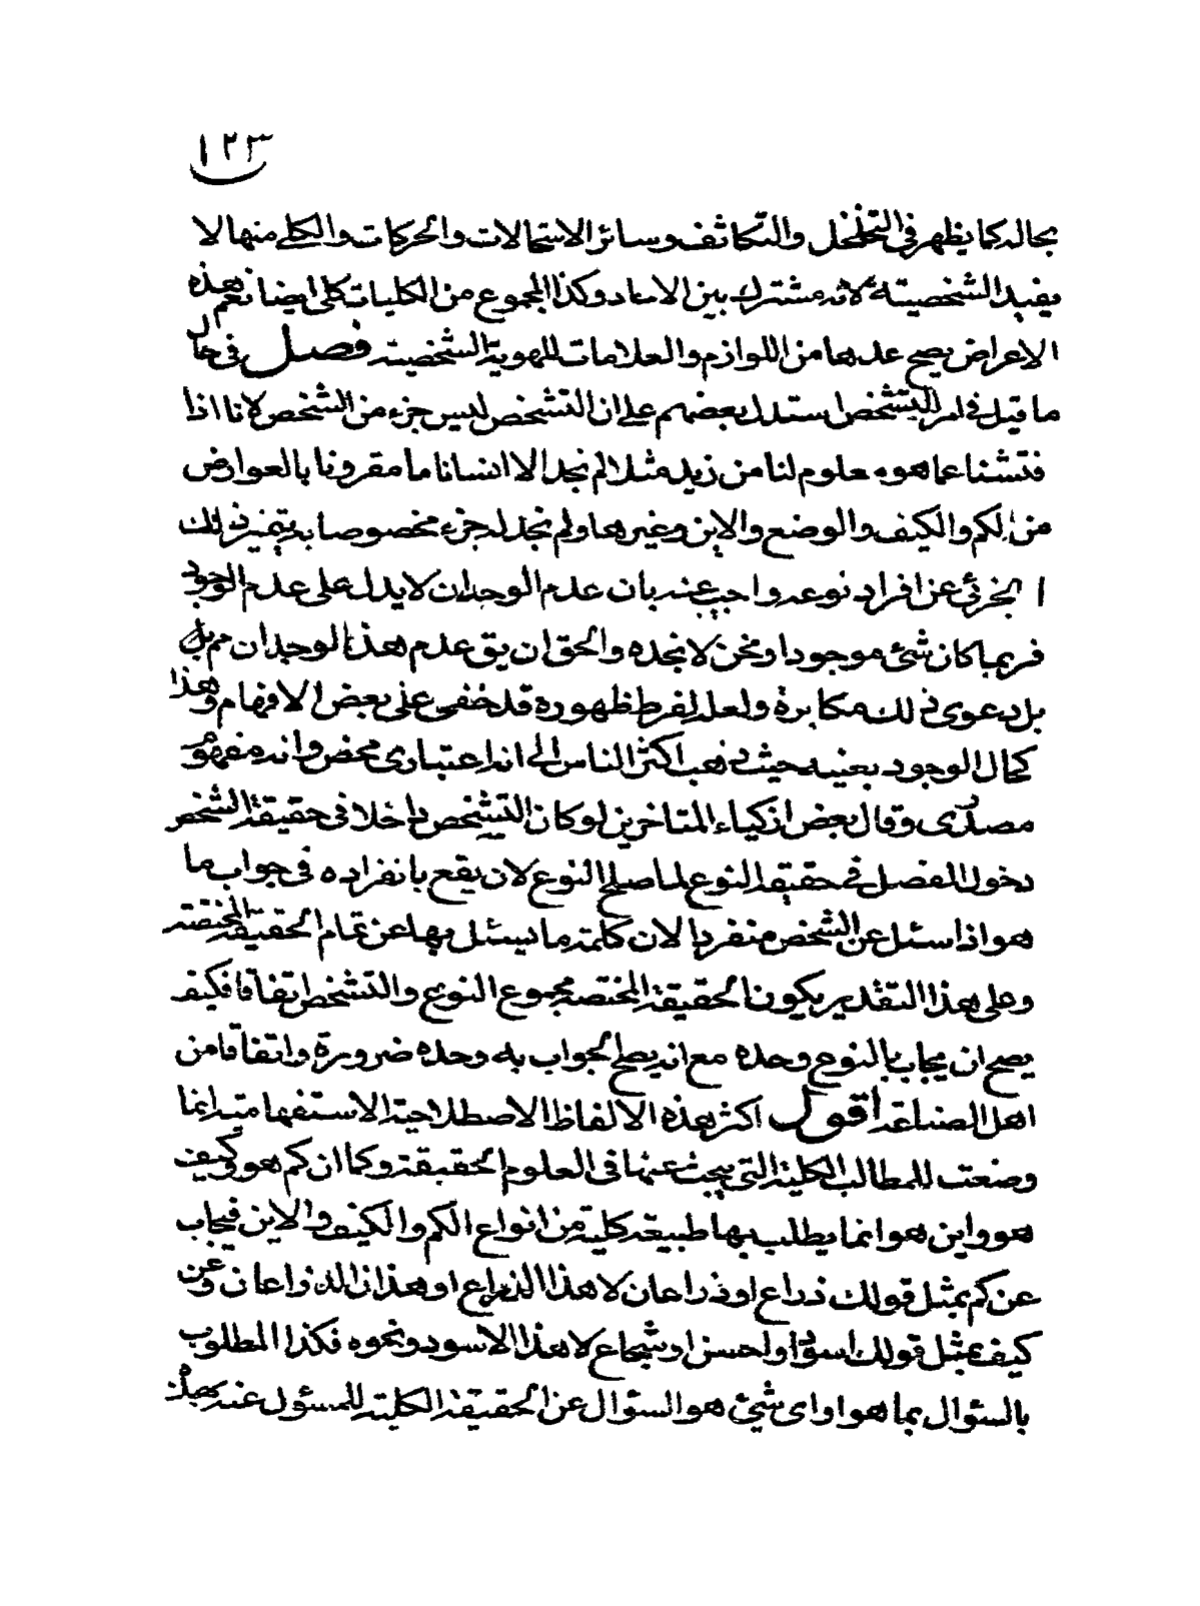 ١٢٣
بحاله كما يظهر فى التخلخل والتكاثف وسائر الاستحالات والحركات والكلى منها لا
يفيد الشخصية لانه مشترك بين الاعداد وكذا المجموع من الكليات كلى ايضا نعم هذه
الاعراض يصح عدها من اللوازم والعلامات للهوية الشخصية فصل فى حال
ما قيل فى امر التشخص استدل بعضهم على ان التشخص ليس جزء من الشخص لانا اذا
فتشنا عما هو معلوم لنا من زيد مثلا لم نجد الا انسانا ما مقرونا بالعوارض
من الكم والكيف والوضع والاين وغيرها ولم نجد له جزء مخصوصا به يتميز ذلك
الجزئى عن افراد نوعه واجيب عنه بان عدم الوجدان لا يدل على عدم الوجود
فربما كان شئ موجودا ونحن لا نجده والحق ان يق عدم هذا الوجدان مم بل
بل دعوى ذلك مكابرة ولعله لفرط ظهوره قد خفى على بعض الافهام وهذا
كحال الوجود بعينه حيث ذهب اكثر الناس الى انه اعتبارى محض وانه مفهوم
مصدرى وقال بعض ازكياء المتاخرين لو كان التشخص داخلا فى حقيقة الشخص
دخول الفصل فى حقيقة النوع لما صلح النوع لان يقع بانفراده فى جواب ما
هو اذا سئل عن الشخص منفردا لان كلمة ما يسئل بها عن تمام الحقيقة المختصة
وعلى هذا التقدير يكون الحقيقة المختصة مجموع النوع والتشخص اتفاقا فكيف
يصح ان يجاب بالنوع وحده مع انه يصح الجواب به وحده ضرورة واتفاقا من
اهل الصناعة اقول اكثر هذه الالفاظ الاصطلاحية الاستفهامية انما
وضعت للمطالب الكلية التى يبحث عنها فى العلوم الحقيقة وكما ان كم هو وكيف
هو واين هو انما يطلب بها طبيعة كلية من انواع الكم والكيف والاين فيجاب
عن كم بمثل قولك ذراع او ذراعان لا هذا الذراع او هذان الذراعان وعن
كيف بمثل قولك اسود او احسن او شجاع لا هذا الاسود ونحوه فكذا المطلوب
بالسئوال بما هو او اى شئ هو السئوال عن الحقيقة الكلية للمسئول عنه